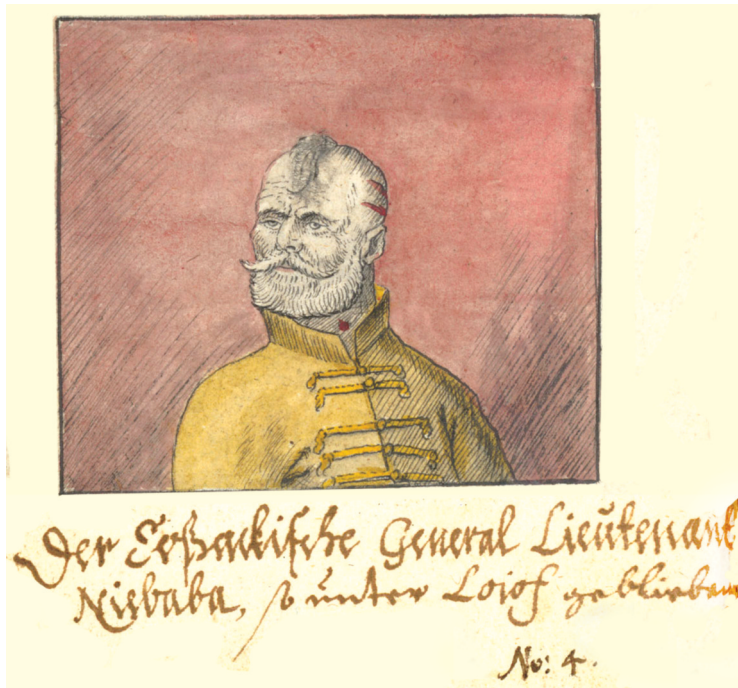 Der Coßackische General Lieutenant
Niebaba, so unter Loiof geblieben
No: 4.